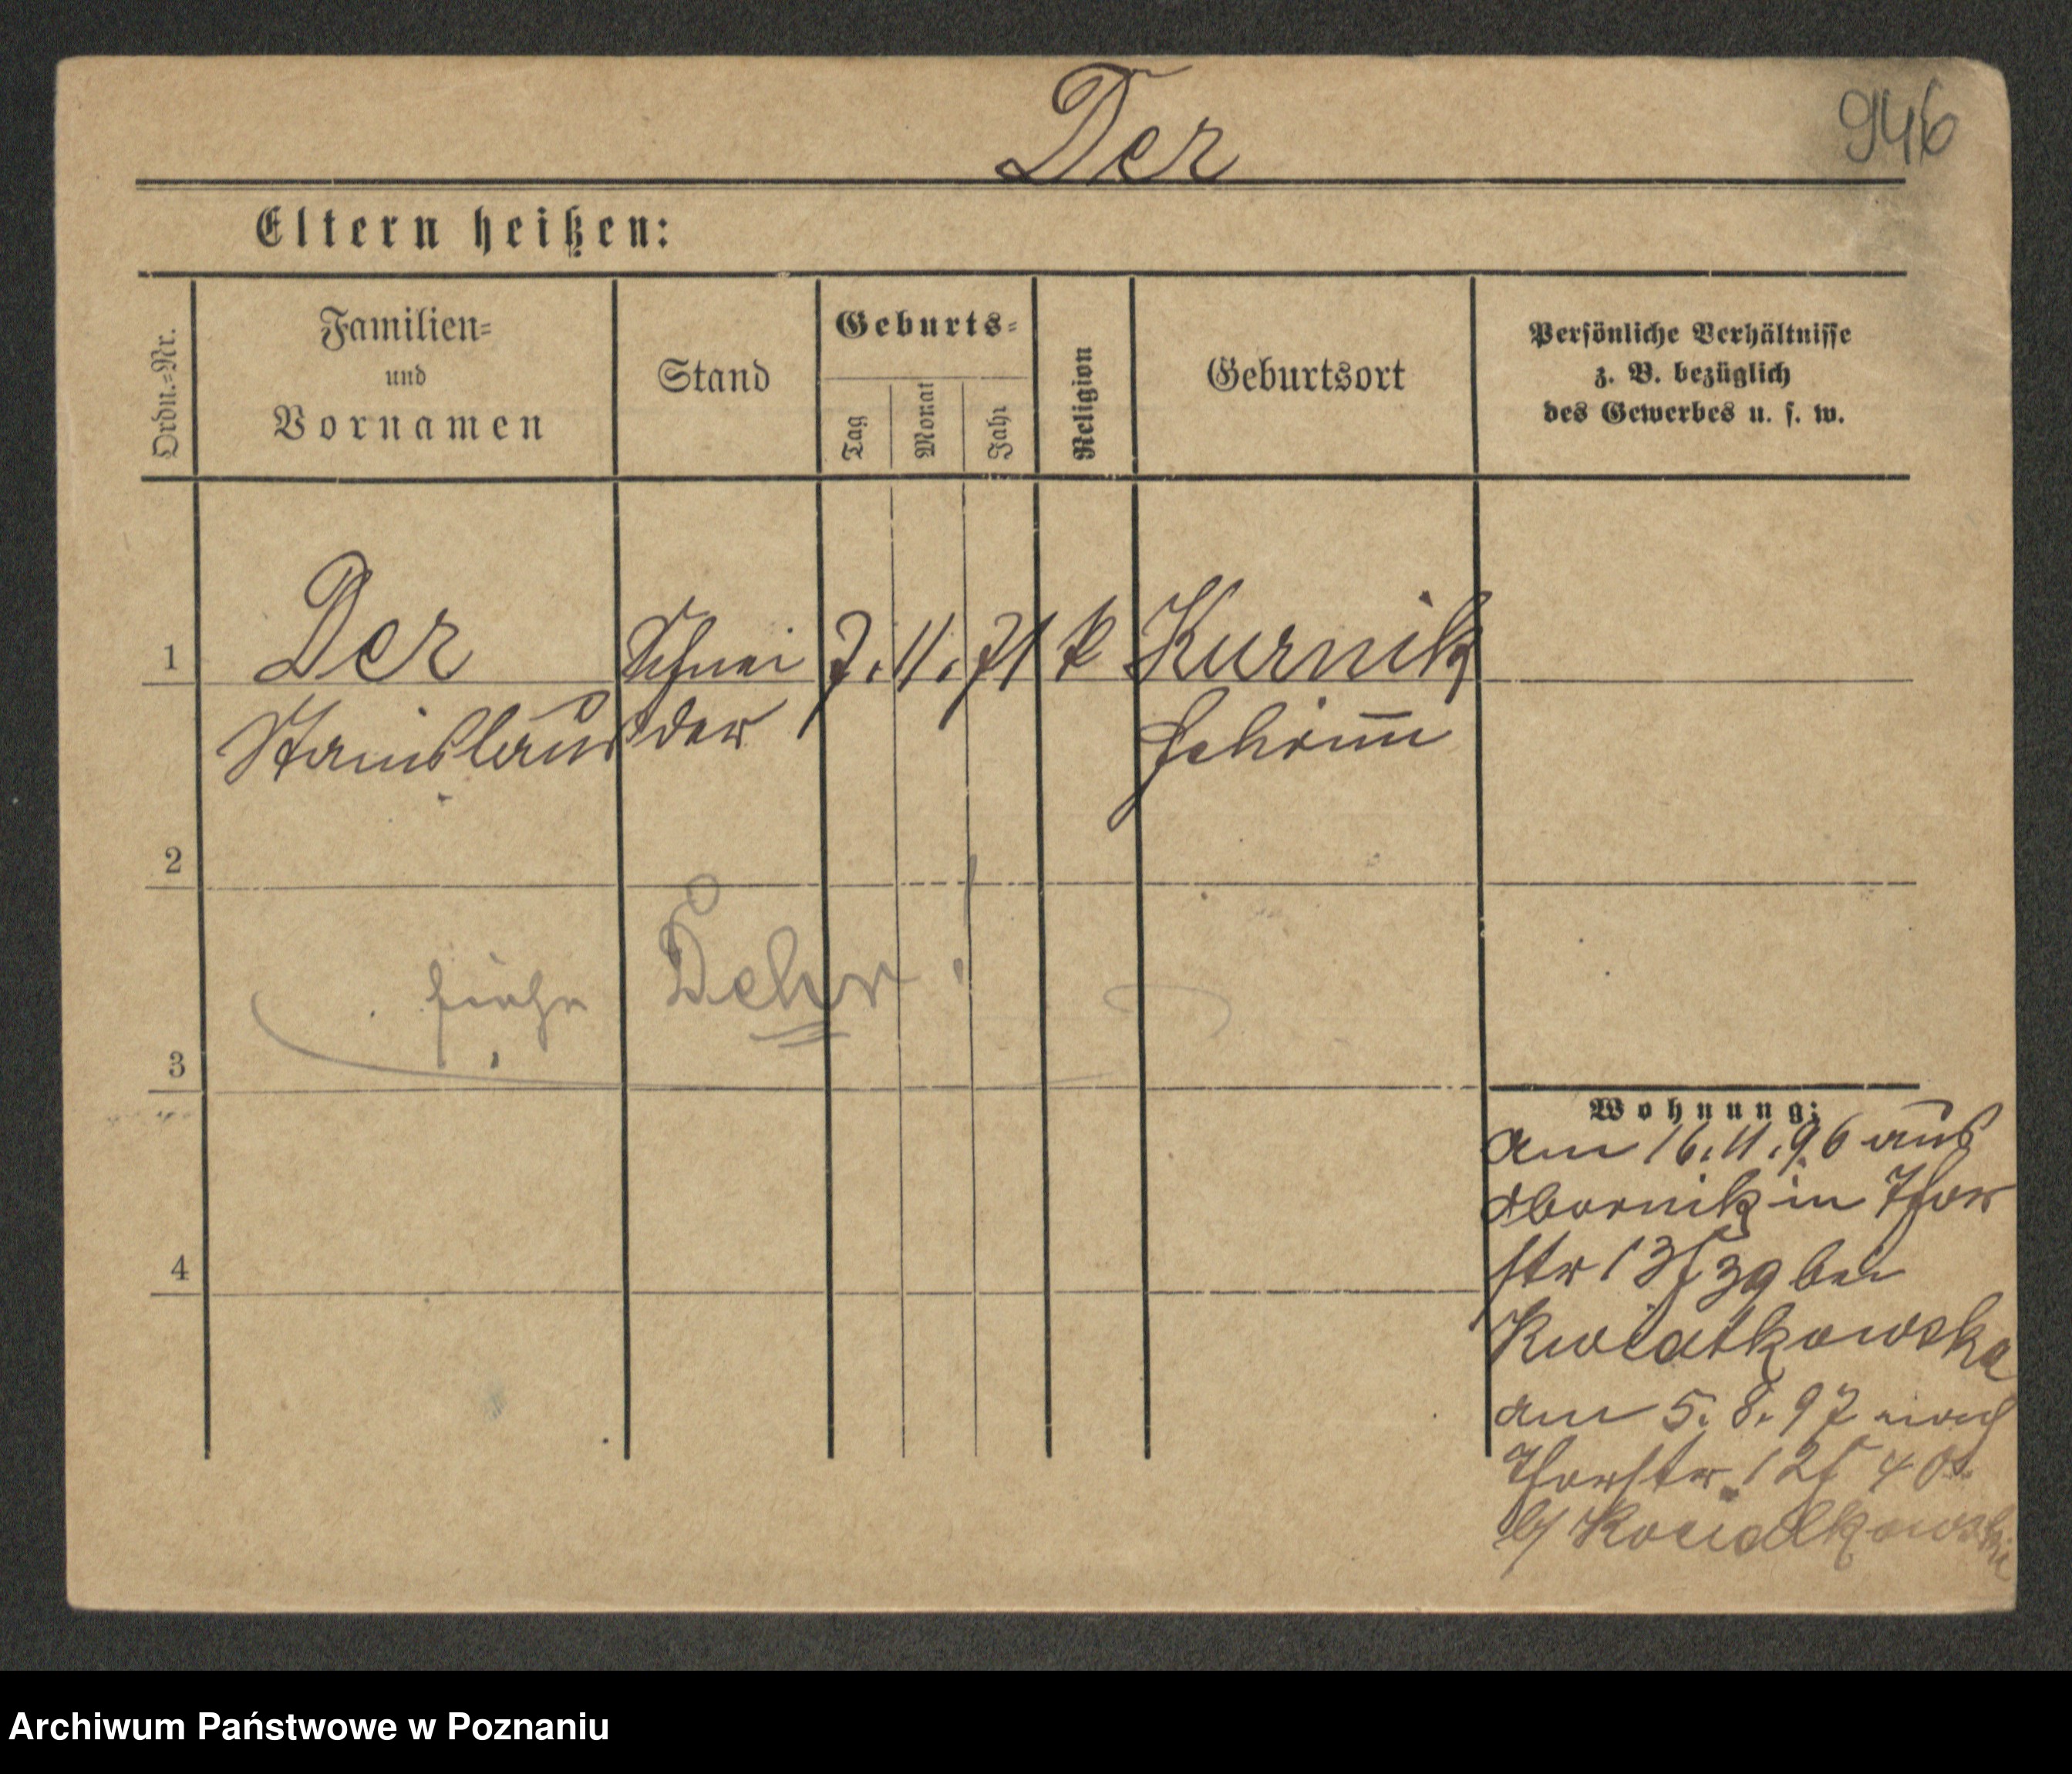 Der
946
Eltern heißen:
Ordn.=Nr.
Familien=
und
Vornamen
Stand
Geburts=
Tag
Monat
Jahr
Religion
Geburtsort
Persönliche Verhältnisse
z. B. bezüglich
des Gewerbes u. s. w.
1 Der Schnei 7. 11. 71 k Kurnik
Stanislaus der Schrimm
2
siehe Dehr!
3
Wohnung:
am 16.11.96 aus
Obornik in Thor
str 13 39 bei
Kwiatkowska
4
am 5.8.97 nach
Thorstr. 12
b/
Archiwum Państwowe w Poznaniu